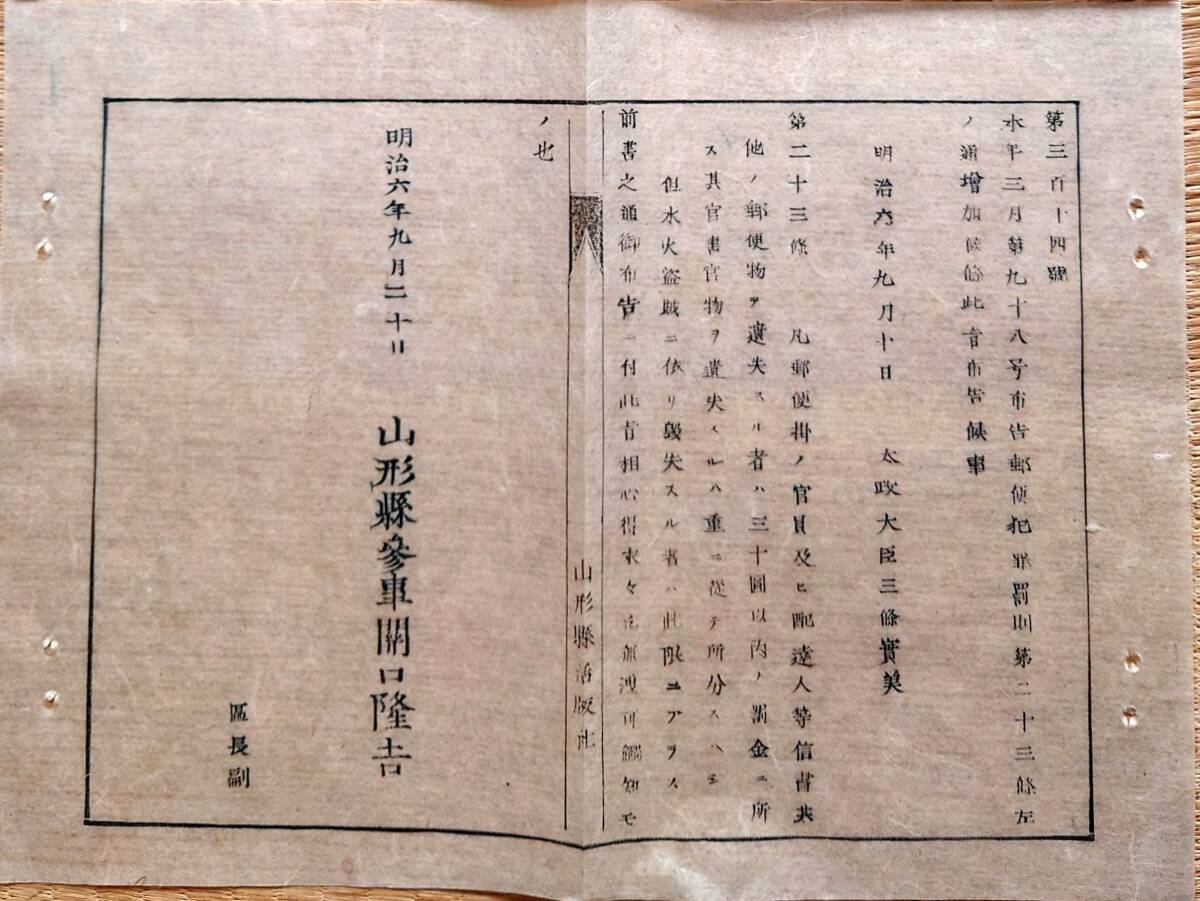 第三百十四號
本年三月第九十八号布告郵便犯罪罰則第二十三條左
ノ通增加候條此旨布告候事
明治六年九月十日 太政大臣三條實美
第二十三條 凡郵便掛ノ官員及ヒ配達人等信書其
他ノ郵便物ヲ遺失スル者ハ三十圓以內ノ罰金ニ所
ス其官書官物ヲ遺失スルハ重ニ從テ所分スヘシ
但水火盜賊ニ依リ毀失スル者ハ此限ニアラス
前書之通御布告ニ付此旨相心得末々迄無洩可觸知モ
ノ也
山形縣活版社
明治六年九月二十日 山形縣參事關口隆吉
區長副